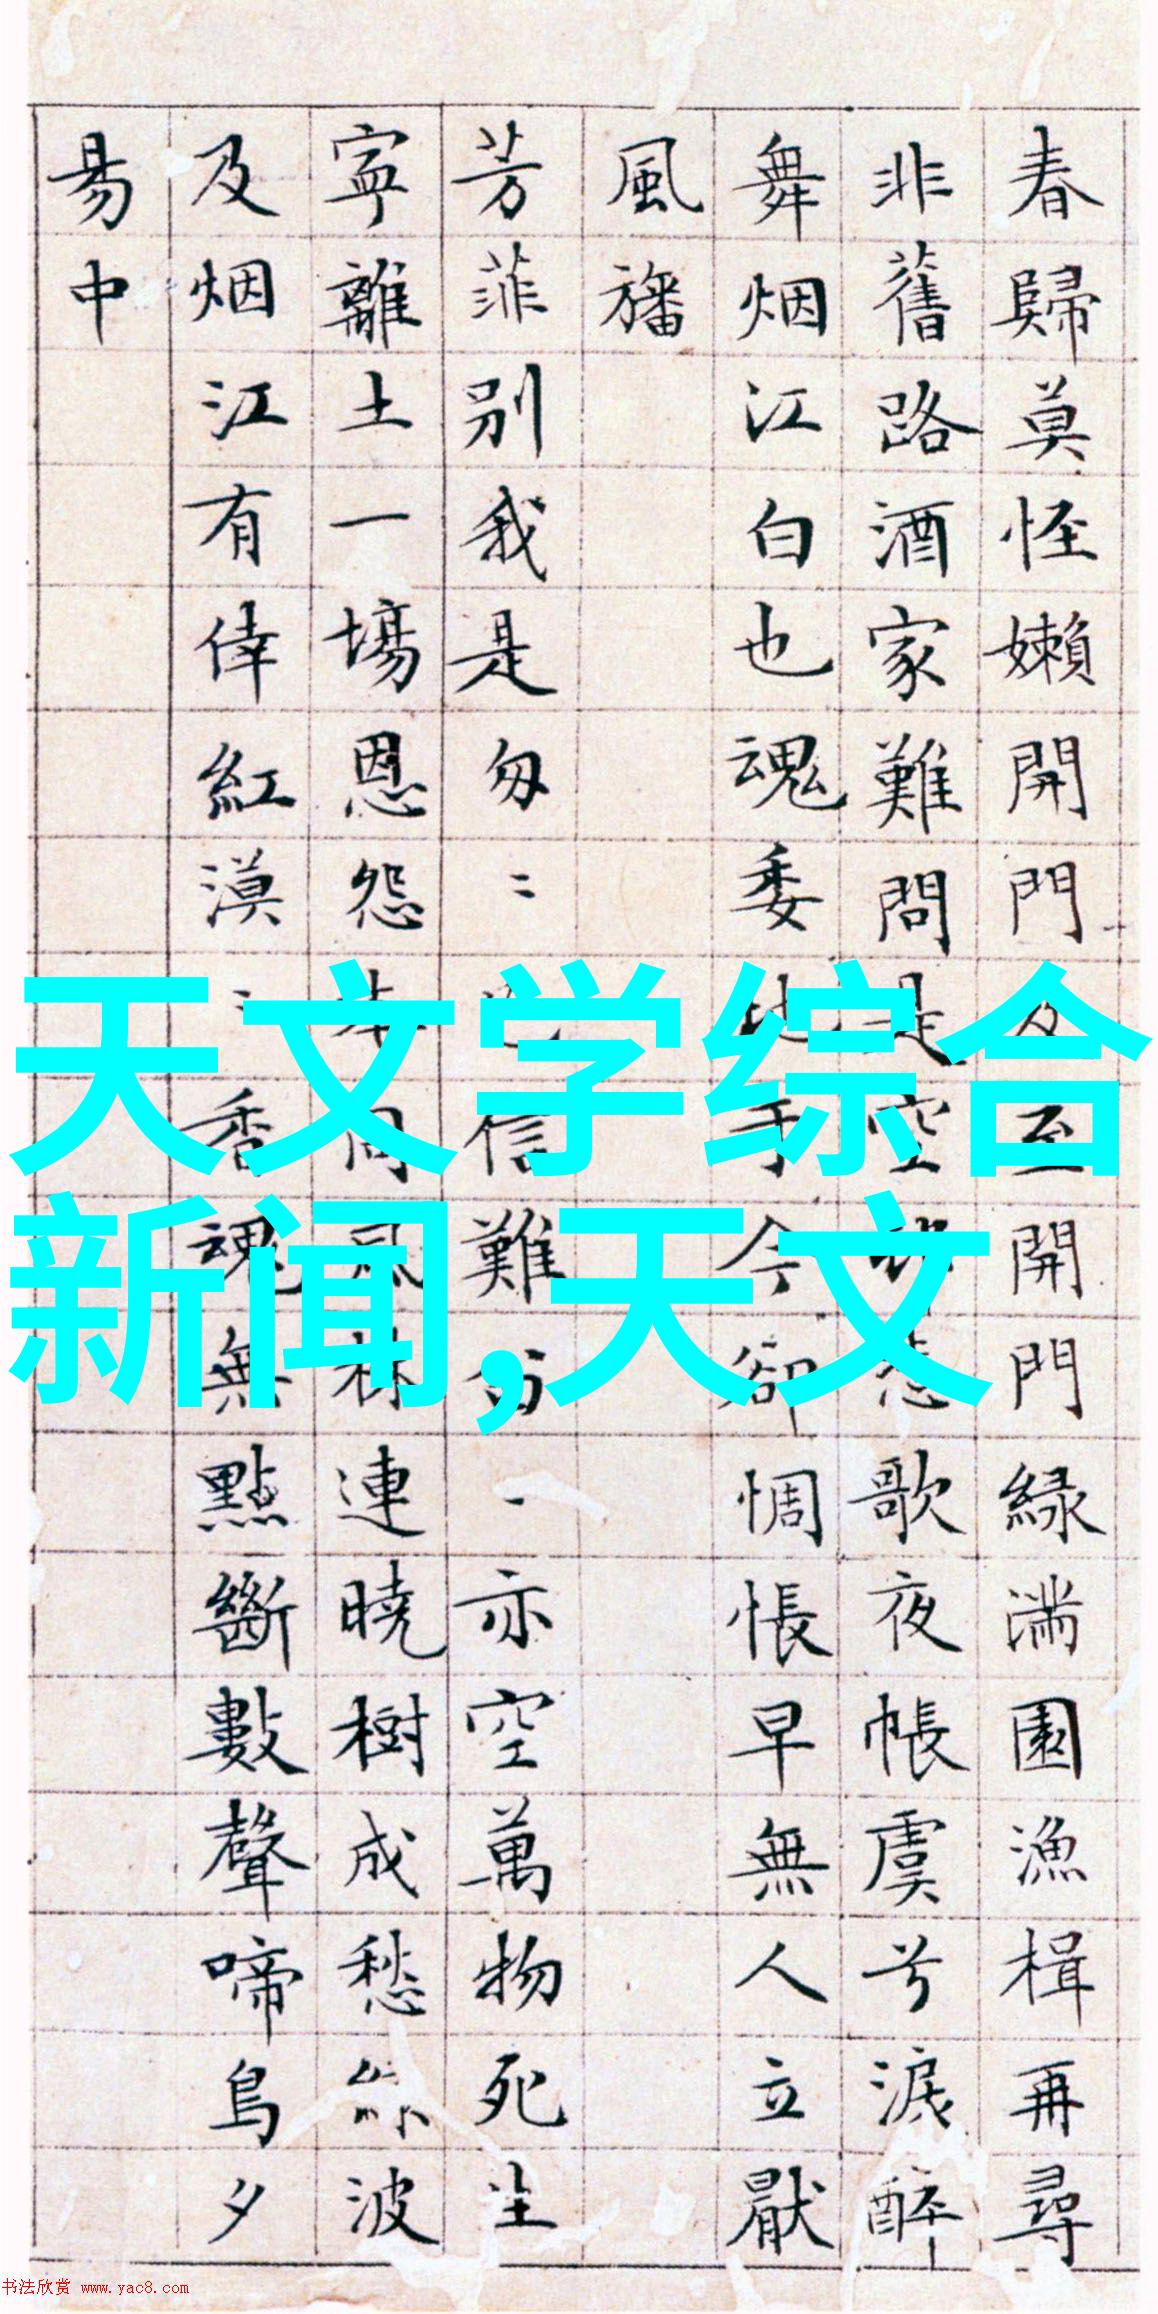 春歸莫怪嬾開門及至開門綠滿園漁楫再尋
非舊路酒家難問是空村悲歌夜帳虞兮淚醉
舞烟江白也魂委地于今卻惆悵早無人立厭
風旛
芳菲別我是匆〻已信難留一亦空萬物死生
寧離土一場恩怨本同風株連曉樹成愁綠波
及烟江有倖紅漠〻香魂無點斷數聲啼鳥夕
易中
天文学综合
新闻,天文
书法欣赏 www.yac8.com